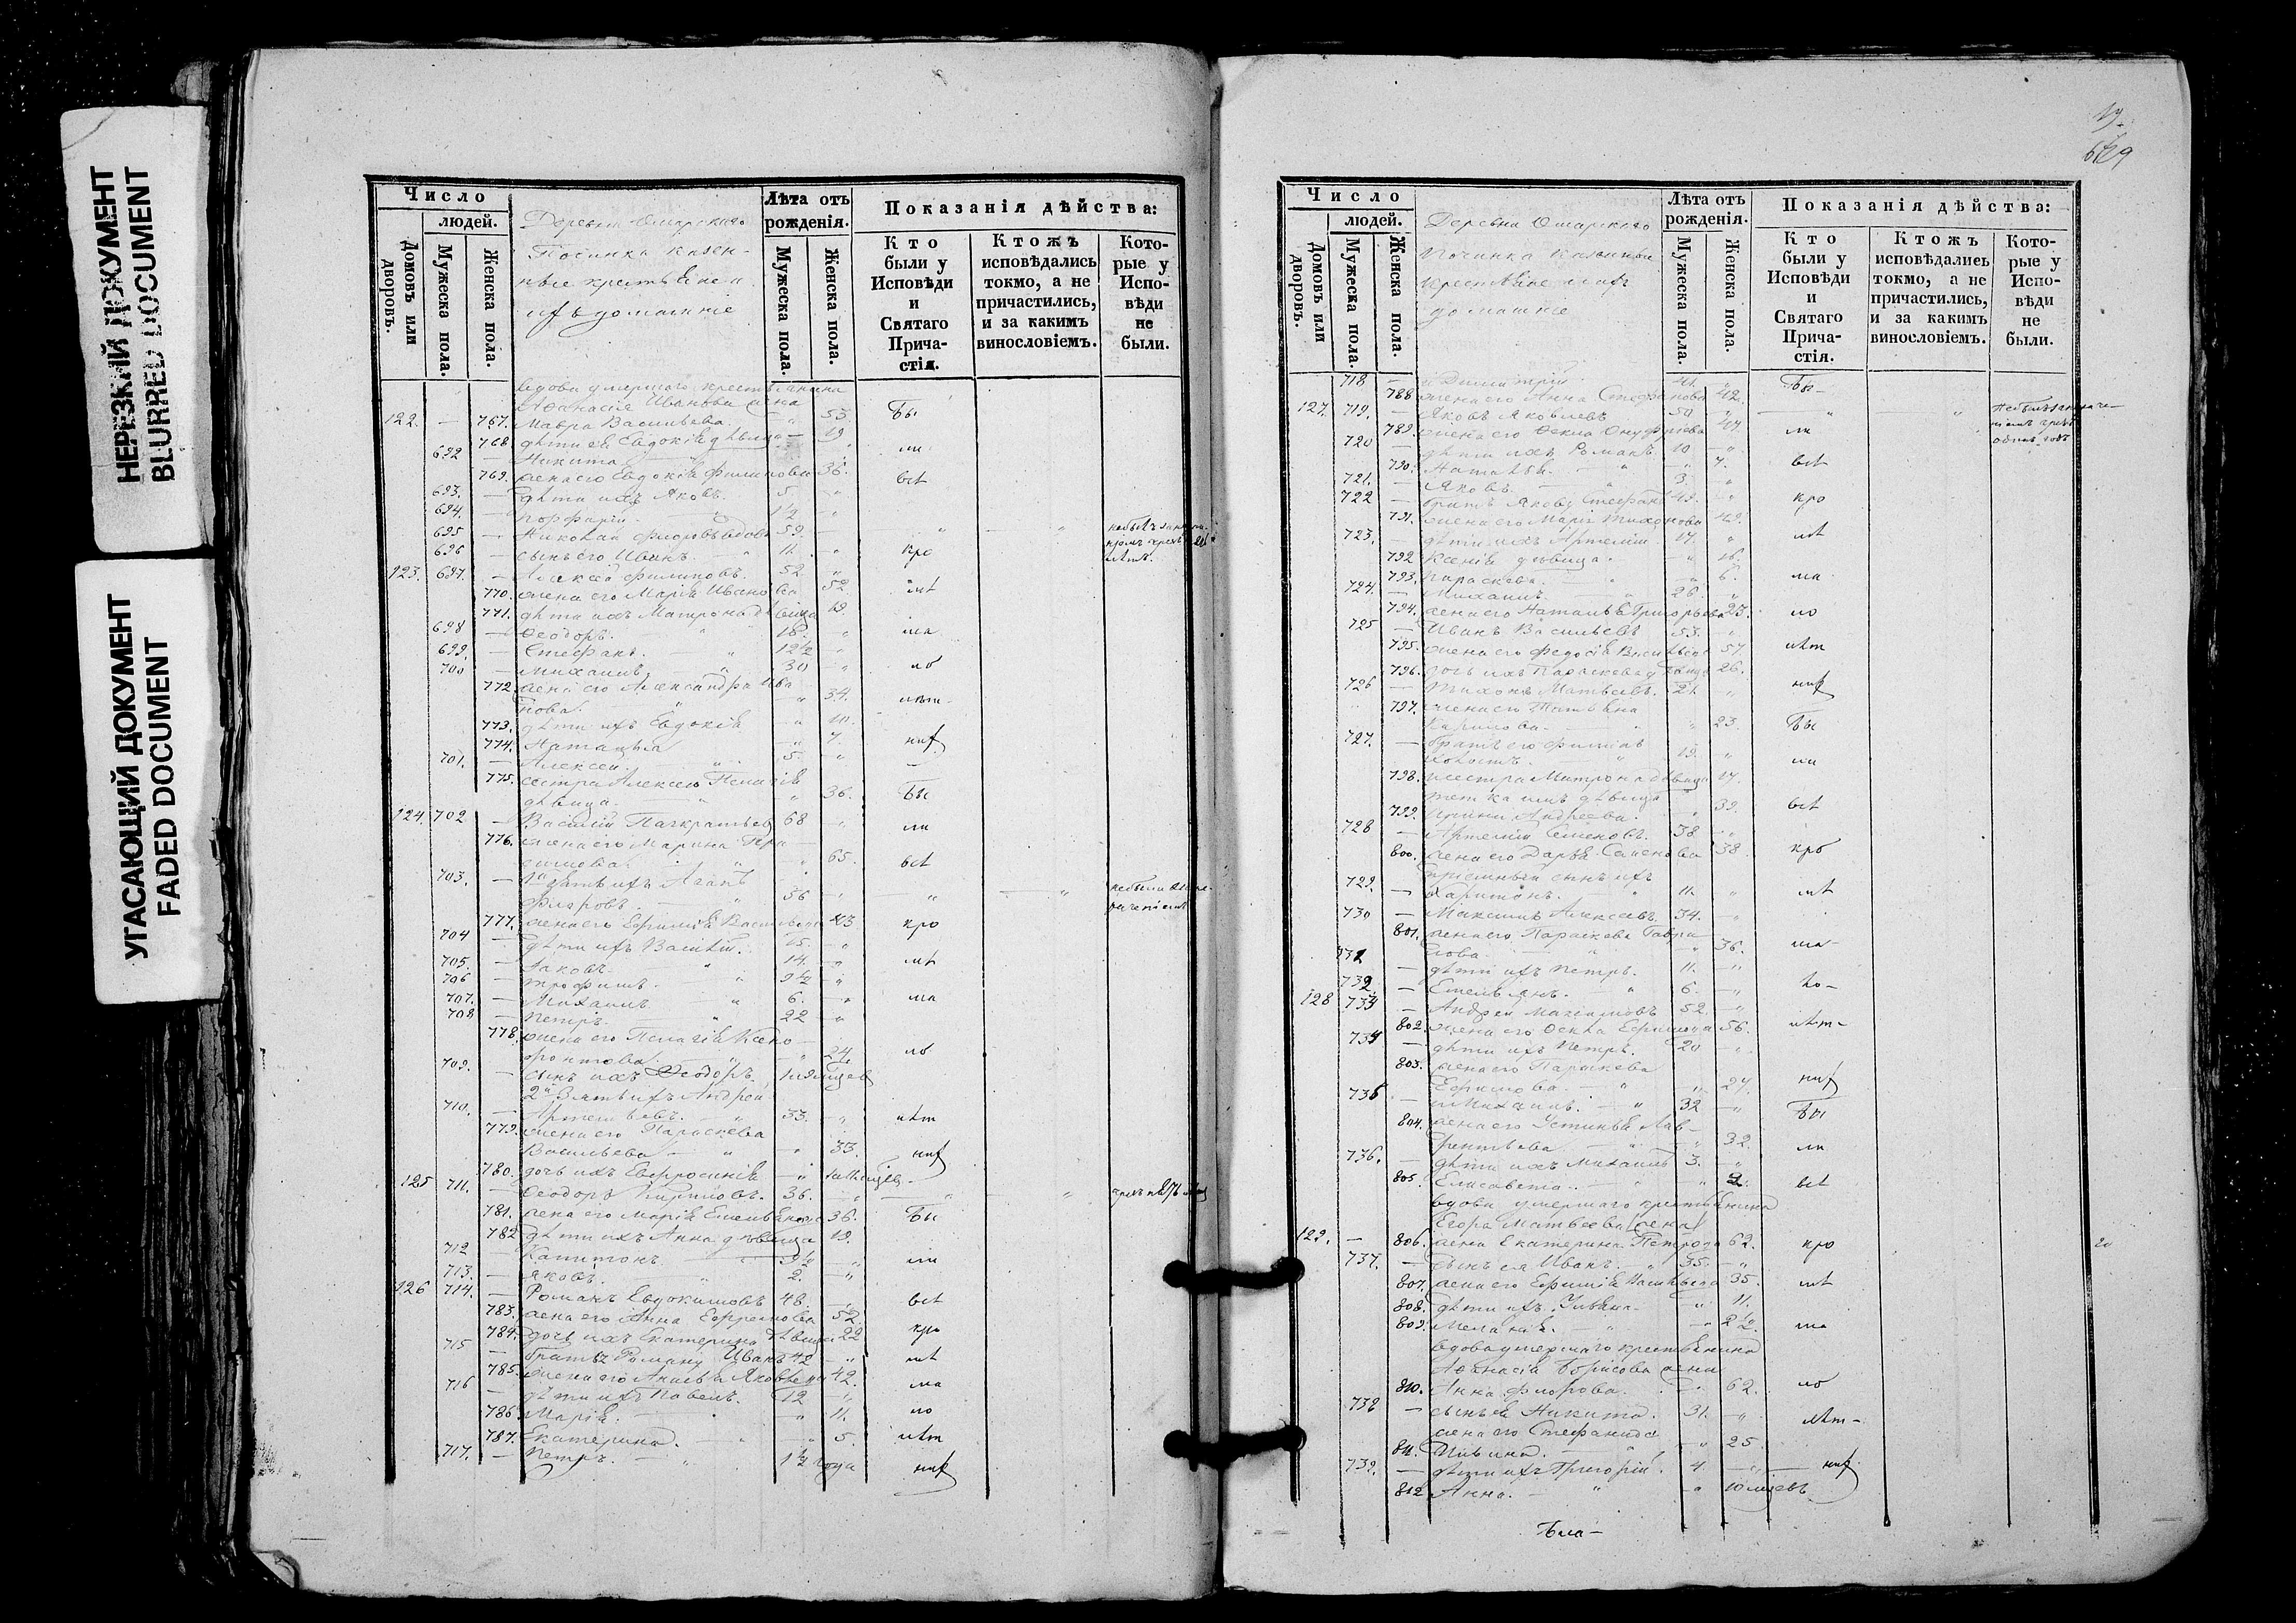 НЕРЕЗКИЙ ДОКУМЕНТ
BLURRED DOCUMENT
УГАСАЮЩИЙ ДОКУМЕНТ
FADED DOCUMENT
Число
людей.
Домовъ или дворовъ.
Мужеска пола.
Женска пола.
Деревни
Починка казен-
ные крестьяне и
ихъ домашніе
Лѣта отъ рожденія.
Мужеска пола.
Женска пола.
Показанія дѣйства:
Кто были у Исповѣди и Святаго Прича-стія.
Ктожъ исповѣдались токмо, а не причастились, и за какимъ винословіемъ.
Кото-рые у Испо-вѣди не были.
вдова умершаго крестьянина
Аѳанасія Иванова жена
122. — 767. Мавра Васильева. " 53 Бы
768. дѣти ея Евдокія дѣвица — 19
692 — Никита ли
769. жена его Евдокія Филипова 36. всѣ
693. — дѣти ихъ Яковъ. 5 "
694. — Порфирій 1½ "
695 — Николай Флоровъ вдовъ 59. "
696 — сынъ его Иванъ. 11. " кро
123. 697. — Алексѣй Филиповъ. 52 "
770. жена его Марія Иванова 52. мѣ
771. дѣти ихъ Матрона дѣвица 19.
698 — Ѳеодоръ. 18. " ма
699. — Стефанъ. 12½ "
700 — Михаилъ 30 " ло
772. жена его Александра Ива
нова. " 34. лѣт-
773. дѣти ихъ Евдокія " 10.
774. Наталья " 7. ниҳ
701. — Алексѣй. 5. "
775. сестра Алексѣю Пелагія
дѣвица. " 36. Бы
124. 702 — Василій Панкратьевъ 68 " ли
776. жена его Марина Гера
симова. " 65. всѣ
703. —
Флоровъ. 36 "
777. жена его Ефимія Васильева 43 кро
704 — дѣти ихъ Василій. 15. "
705. — Іаковъ 14. " мѣ
706 — Трофимъ. 9½ "
707. — Михаилъ 6. " ма
708 — Петръ. 22 "
778. жена его Пелагія Ксено
фонтова. " 24. ло
709. — сынъ ихъ Ѳеодоръ.
2й зять ихъ Андрей
710. — Артемьевъ. 33. " лѣт
779. жена его Параскева
Васильева — " 33.
780. дочь ихъ Евфросинія "
125 711. — Ѳеодоръ Кириловъ. 36. "
781. жена его Марія Емельянова 36. Бы
782 дѣти ихъ Анна дѣвица 19.
712 — Капитонъ ли
713. — Яковъ. 2. "
126 714. — Романъ Евдокимовъ 48. " всѣ
783. жена его Анна Ефремова 52.
784. дочь ихъ Екатерина дѣвица 22 кро
715 — братъ Роману Иванъ 42 " мѣ
785. жена его Анисья Яковлева 42. ма
716 — дѣти ихъ Павелъ. 12 "
786. Марія. " 11. ло
787. Екатерина. " 5. лѣт
717. — Петръ. 1½ года
19.
Число
людей.
Домовъ или дворовъ.
Мужеска пола.
Женска пола.
Деревни
Починка казенные
крестьяне и ихъ
домашніе
Лѣта отъ рожденія.
Мужеска пола.
Женска пола.
Показанія дѣйства:
Кто были у Исповѣди и Святаго Прича-стія.
Ктожъ исповѣдались токмо, а не причастились, и за какимъ винословіемъ.
Кото-рые у Испо-вѣди не были.
718 — Димитрій. 41. " Бы-
788 жена его Анна Стефанова 42.
127. 719. — Яковъ Яковлевъ 50. "
789. жена его Ѳекла Онуфріева 47 ли
720 — дѣти ихъ Романъ 10 "
790. Наталья. " 7. всѣ
721. — Яковъ. 3. "
722 — братъ Якову Стефанъ 49. " кро
791. жена его Марія Тихонова 49.
723. — дѣти ихъ Артемій 17. " мѣ
792 Ксенія дѣвица. " 16
793. Параскева. " 6. ма
724. — Михаилъ. 26. "
794. жена его Наталья Григорьева 23. ло
725 — Иванъ Васильевъ 53. "
795. жена его Федосія Васильева 57. лѣт
796. дочь ихъ Параскева дѣвица 26.
726 — Тихонъ Матвѣевъ. 21. "
797. жена его Татьяна
Карпова. " 23. Бы
727. — братъ его Филипъ
холостъ. 19. " ли
798. сестра Матрона дѣвица 17.
тетка имъ дѣвица
799. Ирина Андреева. " 39. всѣ
728 — Артемій Семеновъ. 38. "
800. жена его Дарья Семенова 38. кро
пріемный сынъ ихъ
729. — Харитонъ. 11. " мѣ
730 — Максимъ Алексѣевъ. 34. "
801. жена его Параскева Гаври
лова. " 36. ма-
731 — дѣти ихъ Петръ. 11. "
732. — Емельянъ. 6. " ло-
128 733 — Андрей Максимовъ 52. "
802. жена его Ѳекла Ефимова 56. лѣт-
734 — дѣти ихъ Петръ. 20 "
803. жена его Параскева
Ефимова. " 27.
735 — Михаилъ. 32 " Бы
804. жена его Устинья Лав-
рентьева " 32. ли
736. — дѣти ихъ Михаилъ 3. "
805. Елисавета. " 2. всѣ
вдова умершаго крестьянина
Егора Матвѣева жена
129. — 806. жена Екатерина Петрова 62. кро
737. — сынъ ея Иванъ. 35. "
807. жена его Ефимія Васильева 35. мѣ
808. дѣти ихъ Ульяна. " 11.
809. Меланія. " 2½. ма
вдова умершаго крестьянина
Аѳанасія Борисова жена
810. Анна Флорова. " 62. ло
738 — сынъ ея Никита. 31. " лѣт-
жена его Стефанида
811. " 25.
739. — дѣти ихъ Григорій. 4. "
812 Анна. " 10 мцевъ
Бла-